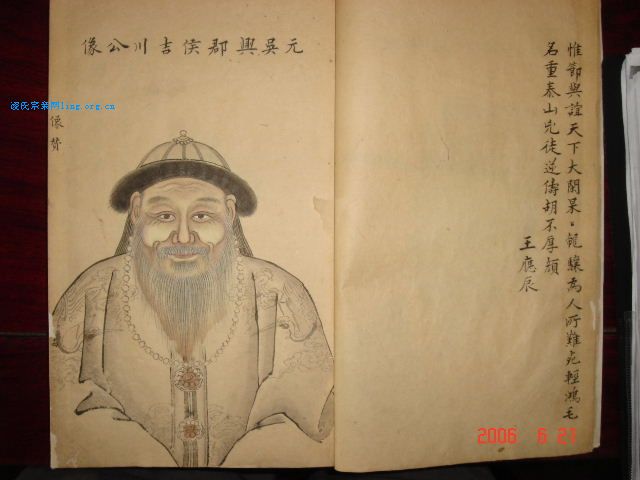 惟節與誼天下大閑杲〻龍驤為人所難死輕鴻毛
名重泰山兇徒逆儔胡不厚顏
王應辰
元吳興郡侯吉川公像
像贊
凌氏宗亲网ling.org.cn
2006 6 21